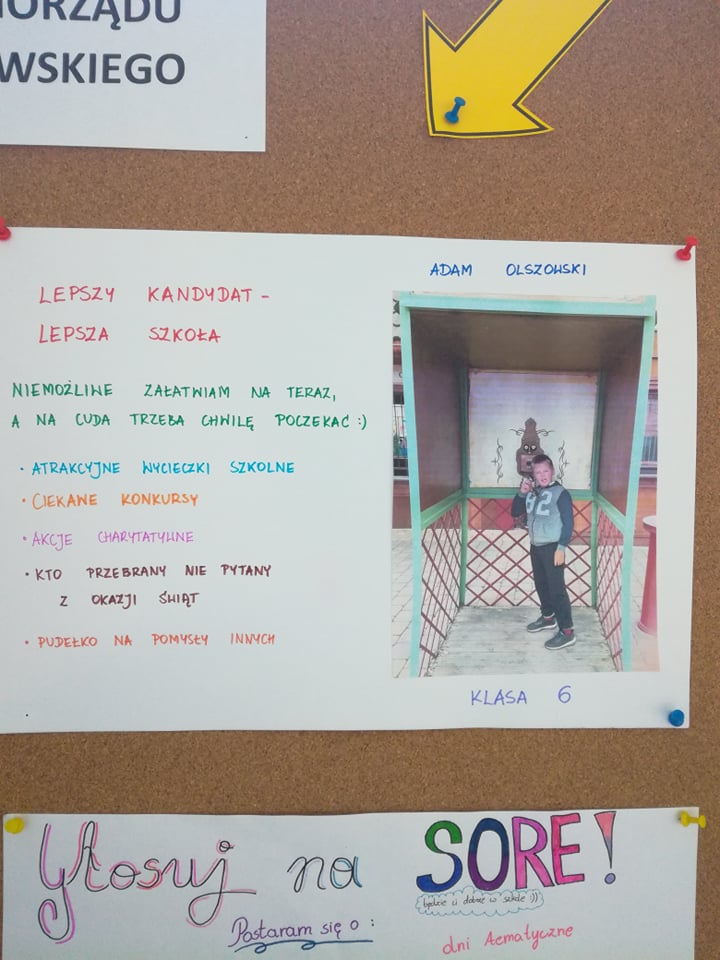 ORZĄDU
WSKIEGO
ADAM OLSZOWSKI
LEPSZY KANDYDAT -
LEPSZA SZKOŁA
NIEMOŻLIWE ZAŁATWIAM NA TERAZ,
A NA CUDA TRZEBA CHWILĘ POCZEKAĆ :)
• ATRAKCYJNE WYCIECZKI SZKOLNE
• CIEKAWE KONKURSY
• AKCJE CHARYTATYWNE
• KTO PRZEBRANY NIE PYTANY
Z OKAZJI ŚWIĄT
• PUDEŁKO NA POMYSŁY INNYCH
82
KLASA 6
Głosuj na SORE!
będzie ci dobrze w szkole :))
Postaram się o :
dni tematyczne